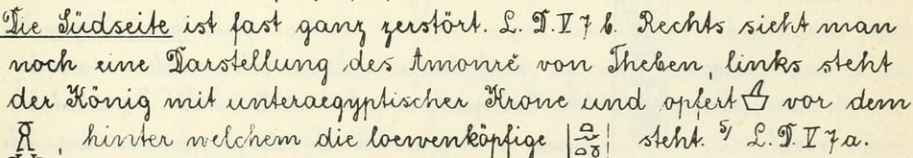 Die Südseite ist fast ganz zerstört. L. D. V 7 b. Rechts sieht man
noch eine Darstellung des Amonrē von Theben, links steht
der König mit unteraegyptischer Krone und opfert vor dem
, hinter welchem die loewenköpfige steht. 5) L. D. V 7a.